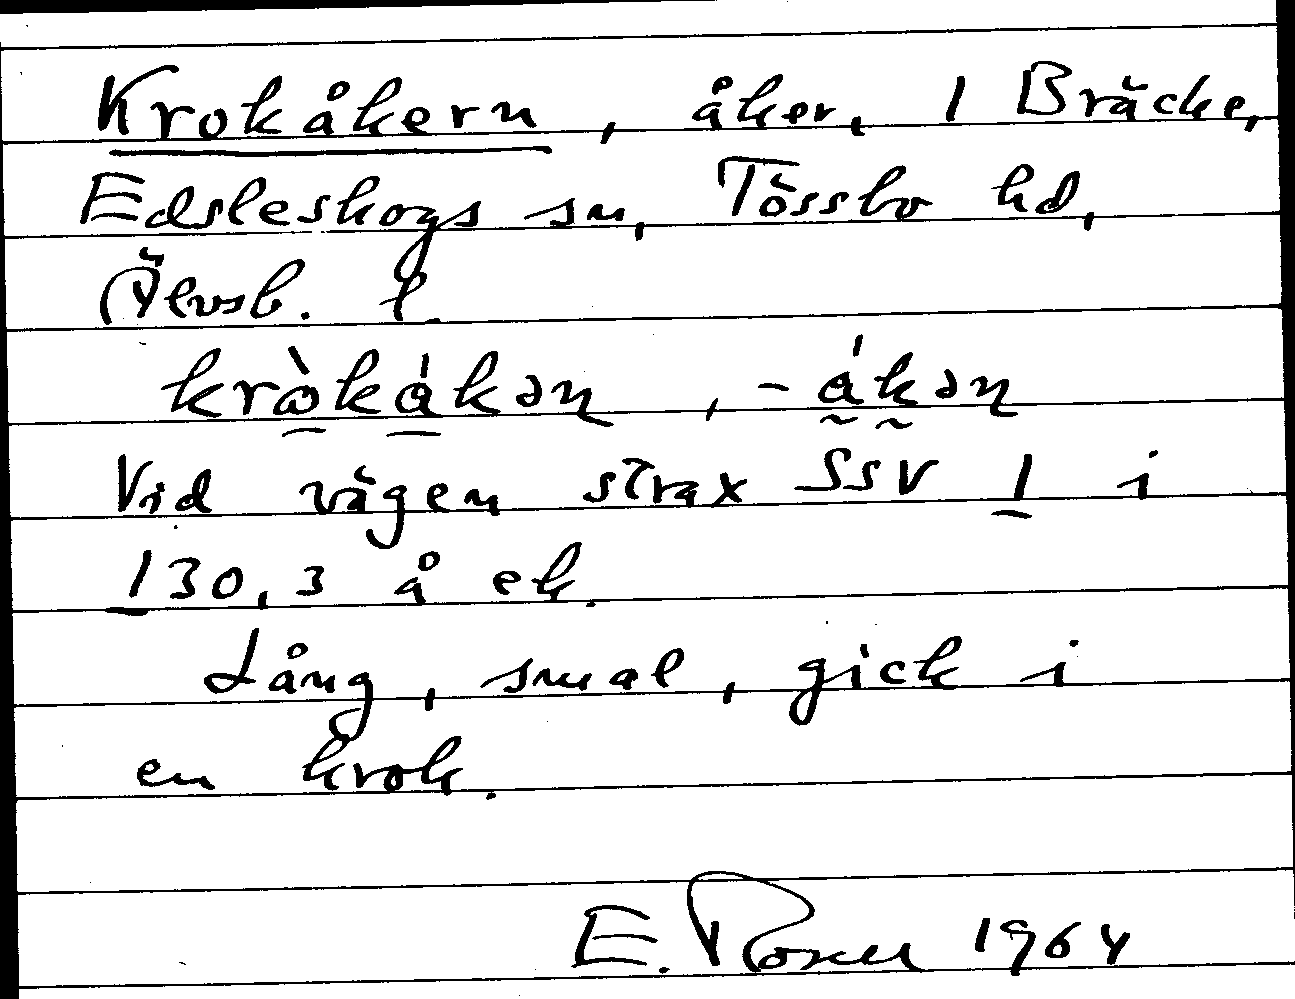 Krokåkern, åker, 1 Bräcke,
Edsleskogs sn, Tössbo hd,
Älvsb. l.
krὰkákən, -ákən
Vid vägen strax SSV 1 i
130,3 å ek.
Lång, smal, gick i
en krok.
E. Rosell 1964